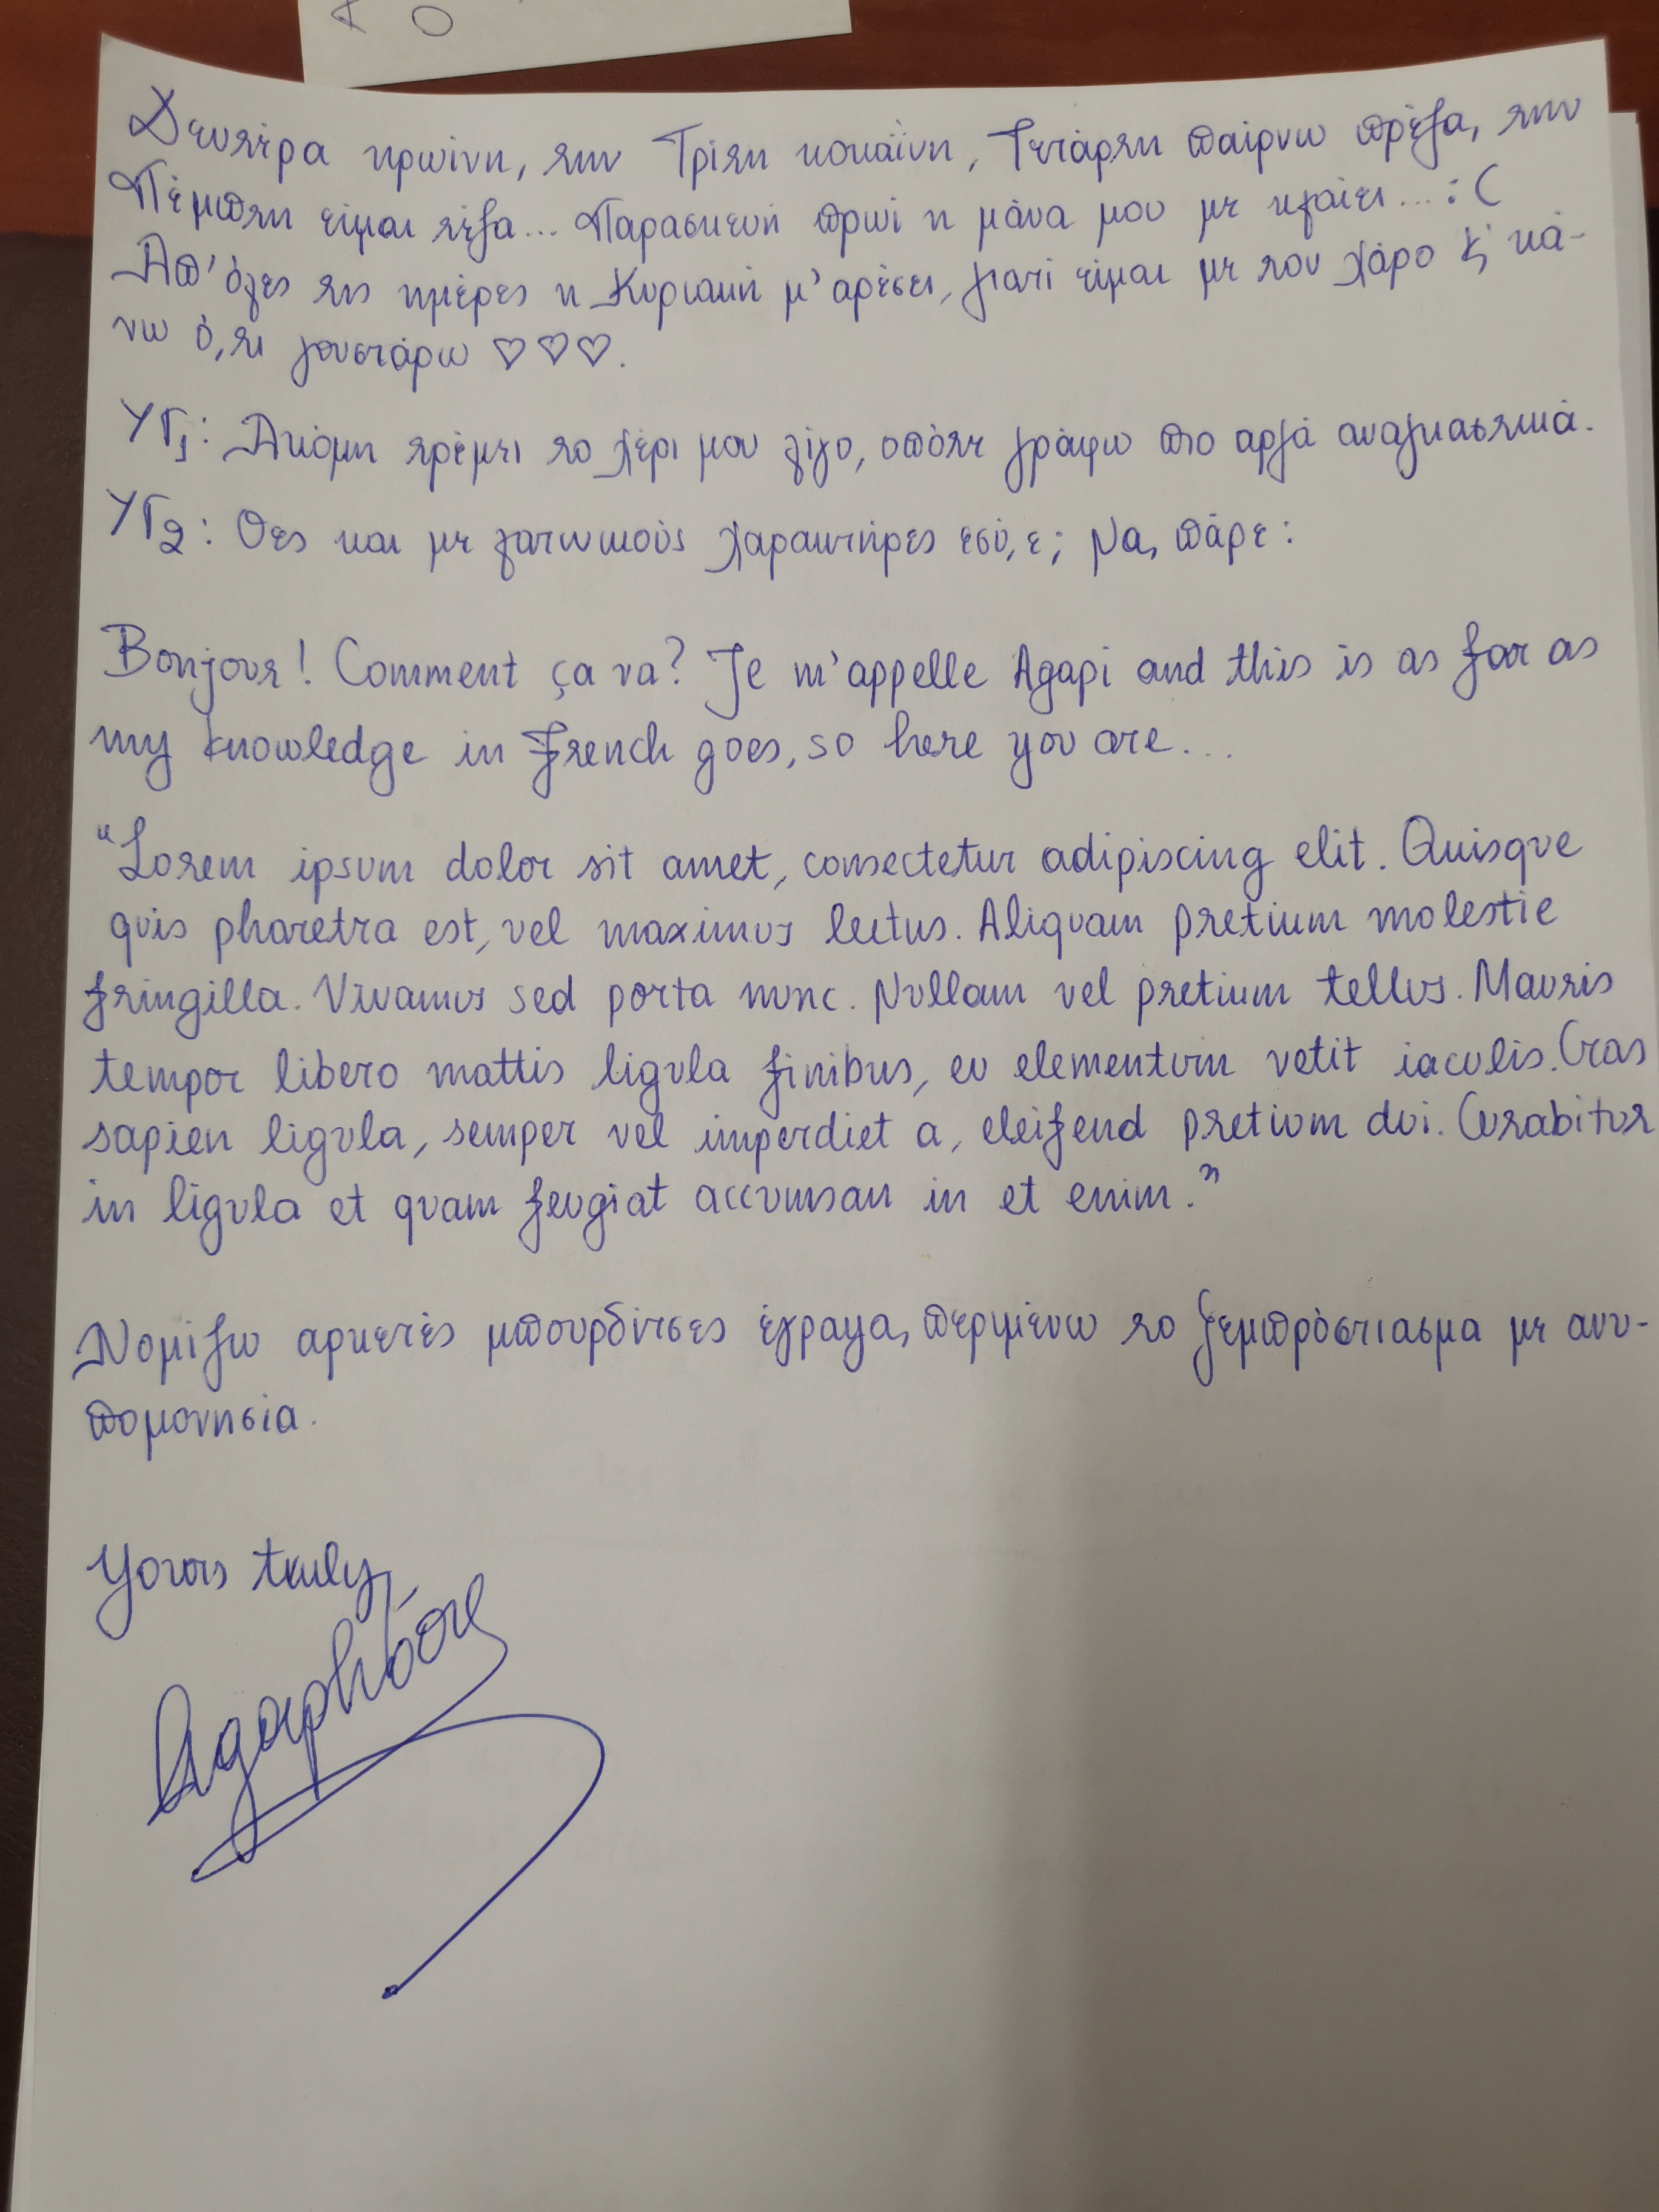 Δευτέρα ηρωίνη, την Τρίτη κοκαΐνη, Τετάρτη παίρνω πρέζα, την
Πέμπτη είμαι τέζα... Παρασκευή πρωί η μάνα μου με κλαίει... :(
Απ' όλες τις ημέρες η Κυριακή μ' αρέσει, γιατί είμαι με τον χάρο & κά-
νω ό,τι γουστάρω ♡♡♡.
ΥΓ1: Ακόμη τρέμει το χέρι μου λίγο, οπότε γράφω πιο αργά αναγκαστικά.
ΥΓ2: Θες και με λατινικούς χαρακτήρες εσύ, ε; Να, πάρε:
Bonjour! Comment ça va? Je m'appelle Agapi and this is as far as
my knowledge in French goes, so here you are...
"Lorem ipsum dolor sit amet, consectetur adipiscing elit. Quisque
quis pharetra est, vel maximus lectus. Aliquam pretium molestie
fringilla. Vivamus sed porta nunc. Nullam vel pretium tellus. Mauris
tempor libero mattis ligula finibus, eu elementum vetit iaculis. Cras
sapien ligula, semper vel imperdiet a, eleifend pretium dui. Curabitur
in ligula et quam feugiat accumsan in et enim."
Νομίζω αρκετές μπουρδίτσες έγραψα, περιμένω το ξεμπρόστιασμα με ανυ-
πομονησία.
Yours truly,